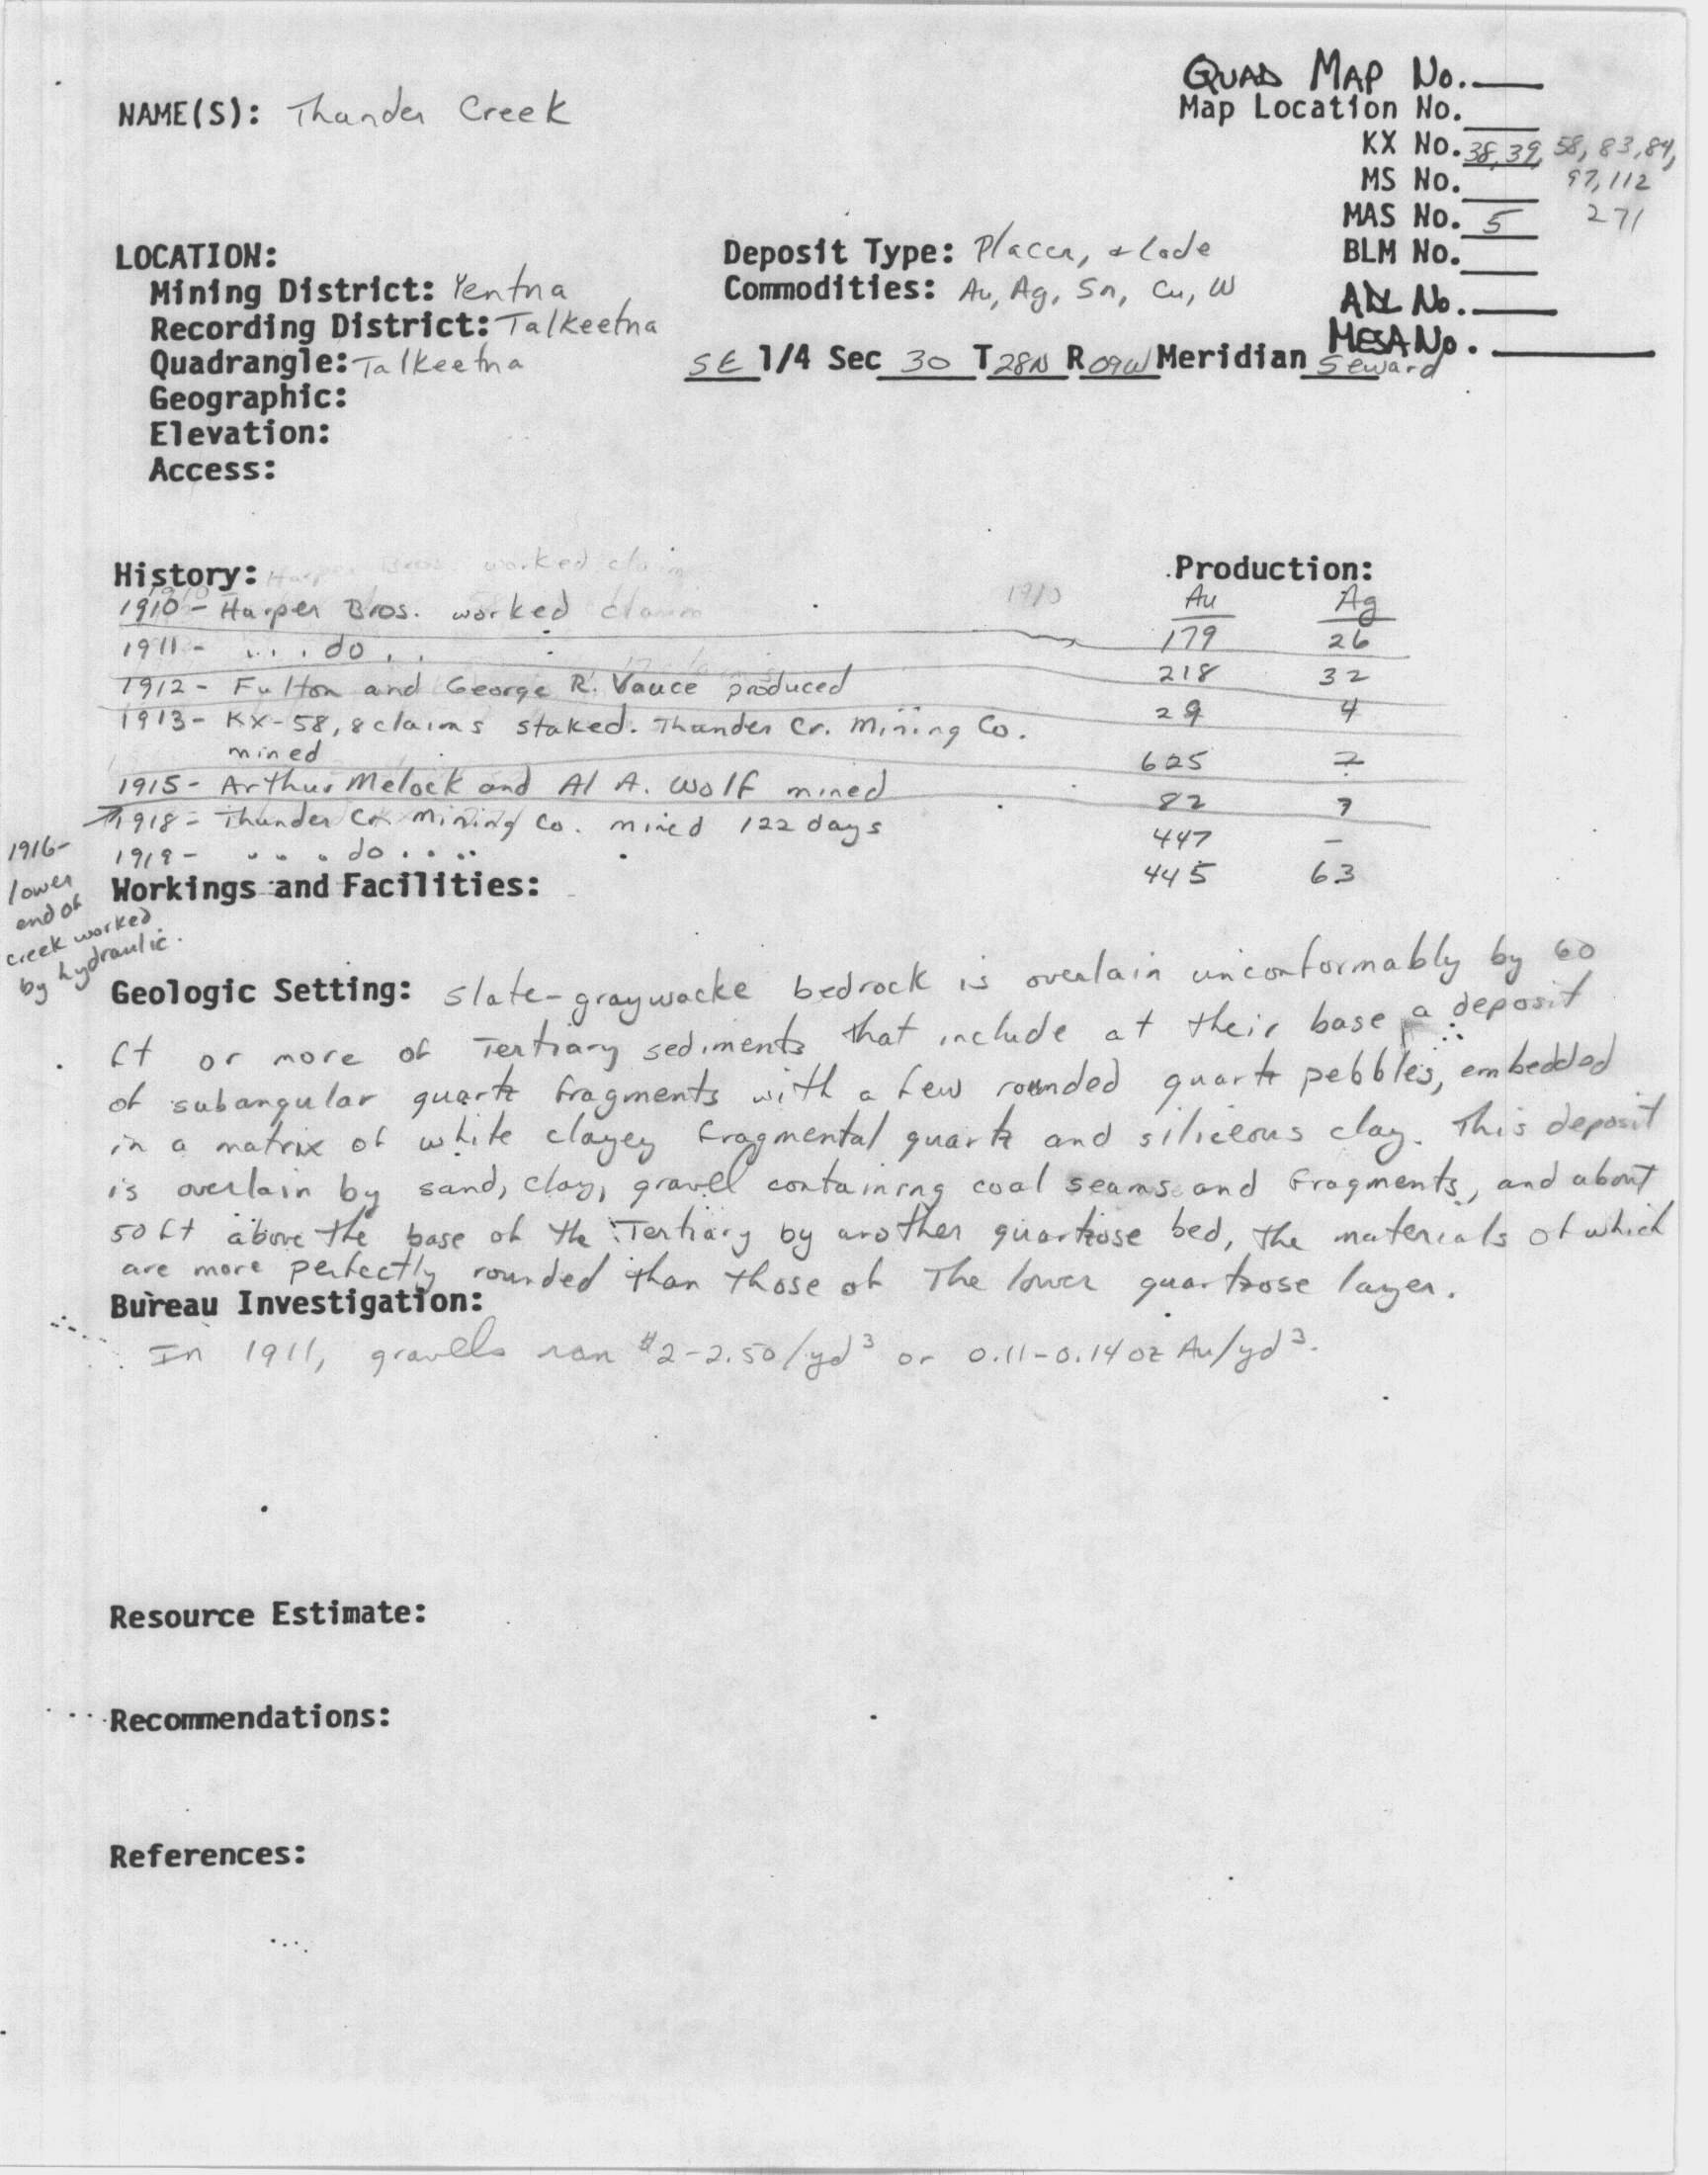 QUAD MAP No.
NAME(S): Thunder Creek
Map Location No.
KX No. 38, 39, 58, 83, 84,
97, 112
MS No.
MAS No. 5 271
BLM No.
ADL No.
MESA No.
LOCATION:
Mining District: Yentna
Recording District: Talkeetna
Quadrangle: Talkeetna
Geographic:
Elevation:
Access:
Deposit Type: Placer, & lode
Commodities: Au, Ag, Sn, Cu, W
SE 1/4 Sec 30 T 28N R 09W Meridian Seward
History: Production:
Au Ag
1910 - Harper Bros. worked claim 1910 179 26
1911 - ... do .. 218 32
1912 - Fulton and George R. Vauce produced 29 4
1913 - KX-58, 8 claims staked. Thunder Cr. Mining Co.
mined 625 ?
1915 - Arthur Melock and Al A. Wolf mined 82 ?
1918 - Thunder Cr. Mining Co. mined 122 days 447 -
1919 - ... do .... 445 63
1916-
lower
end of
creek worked
by hydraulic.
Workings and Facilities:
Geologic Setting: slate-graywacke bedrock is overlain unconformably by 60
ft or more of Tertiary sediments that include at their base a deposit
of subangular quartz fragments with a few rounded quartz pebbles, embedded
in a matrix of white clayey fragmental quartz and siliceous clay. This deposit
is overlain by sand, clay, gravel containing coal seams and fragments, and about
50 ft above the base of the Tertiary by another quartzose bed, the materials of which
are more perfectly rounded than those of The lower quartzose layer.
Bureau Investigation:
In 1911, gravels ran $2-2.50/yd³ or 0.11-0.14 oz Au/yd³.
Resource Estimate:
Recommendations:
References: